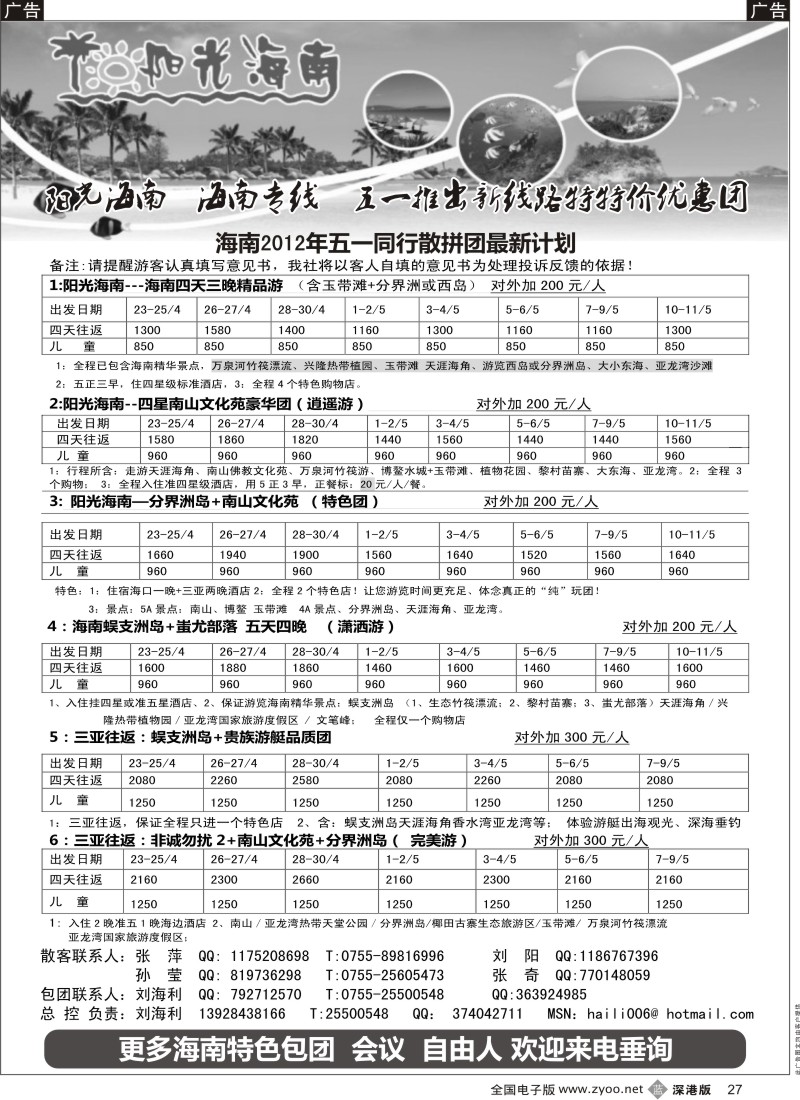 广告
广告
阳光海南
阳光海南 海南专线 五一推出新线路特特价优惠团
海南2012年五一同行散拼团最新计划
备注:请提醒游客认真填写意见书，我社将以客人自填的意见书为处理投诉反馈的依据！
1:阳光海南---海南四天三晚精品游 （含玉带滩+分界洲或西岛） 对外加 200 元/人
出发日期 23-25/4 26-27/4 28-30/4 1-2/5 3-4/5 5-6/5 7-9/5 10-11/5
四天往返 1300 1580 1400 1160 1300 1160 1160 1300
儿 童 850 850 850 850 850 850 850 850
1：全程已包含海南精华景点，万泉河竹筏漂流、兴隆热带植园、玉带滩 天涯海角、游览西岛或分界洲岛、大小东海、亚龙湾沙滩
2：五正三早，住四星级标准酒店，3：全程 4 个特色购物店。
2:阳光海南--四星南山文化苑豪华团（逍遥游） 对外加 200 元/人
出发日期 23-25/4 26-27/4 28-30/4 1-2/5 3-4/5 5-6/5 7-9/5 10-11/5
四天往返 1580 1860 1820 1440 1560 1440 1440 1560
儿 童 960 960 960 960 960 960 960 960
1：行程所含：走游天涯海角、南山佛教文化苑、万泉河竹筏游、博鳌水城+玉带滩、植物花园、黎村苗寨、大东海、亚龙湾。2：全程 3
个购物； 3：全程入住准四星级酒店，用 5 正 3 早，正餐标：20 元/人/餐。
3: 阳光海南—分界洲岛+南山文化苑 （特色团） 对外加 200 元/人
出发日期 23-25/4 26-27/4 28-30/4 1-2/5 3-4/5 5-6/5 7-9/5 10-11/5
四天往返 1660 1940 1900 1560 1640 1520 1560 1640
儿 童 960 960 960 960 960 960 960 960
特色：1：住宿海口一晚+三亚两晚酒店 2：全程 2 个特色店！让您游览时间更充足、体念真正的“纯”玩团！
3：景点：5A 景点：南山、博鳌 玉带滩 4A 景点、分界洲岛、天涯海角、亚龙湾。
4：海南蜈支洲岛+蚩尤部落 五天四晚 （潇洒游） 对外加 200 元/人
出发日期 23-25/4 26-27/4 28-30/4 1-2/5 3-4/5 5-6/5 7-9/5 10-11/5
四天往返 1600 1880 1860 1460 1600 1460 1460 1600
儿 童 960 960 960 960 960 960 960 960
1、入住挂四星或准五星酒店、2、保证游览海南精华景点：蜈支洲岛 （1、生态竹筏漂流；2、黎村苗寨；3、蚩尤部落）天涯海角／兴
隆热带植物园／亚龙湾国家旅游度假区 ／ 文笔峰； 全程仅一个购物店
5：三亚往返：蜈支洲岛+贵族游艇品质团 对外加 300 元/人
出发日期 23-25/4 26-27/4 28-30/4 1-2/5 3-4/5 5-6/5 7-9/5
四天往返 2080 2260 2580 2080 2260 2080 2080
儿 童 1250 1250 1250 1250 1250 1250 1250
1：三亚往返，保证全程只进一个特色店 2、含：蜈支洲岛天涯海角香水湾亚龙湾等； 体验游艇出海观光、深海垂钓
6：三亚往返：非诚勿扰 2+南山文化苑+分界洲岛（ 完美游） 对外加 300 元/人
出发日期 23-25/4 26-27/4 28-30/4 1-2/5 3-4/5 5-6/5 7-9/5
四天往返 2160 2300 2660 2160 2300 2160 2160
儿 童 1250 1250 1250 1250 1250 1250 1250
1：入住 2 晚准五 1 晚海边酒店 2、南山／亚龙湾热带天堂公园／分界洲岛/椰田古寨生态旅游区/玉带滩/ 万泉河竹筏漂流
亚龙湾国家旅游度假区；
散客联系人：张 萍 QQ: 1175208698 T:0755-89816996 刘 阳 QQ:1186767396
孙 莹 QQ: 819736298 T:0755-25605473 张 奇 QQ:770148059
包团联系人：刘海利 QQ: 792712570 T:0755-25500548 QQ:363924985
总 控 负责：刘海利 13928438166 T:25500548 QQ: 374042711 MSN: haili006@ hotmail.com
更多海南特色包团 会议 自由人 欢迎来电垂询
全国电子版 www.zyoo.net 蓝 深港版 27